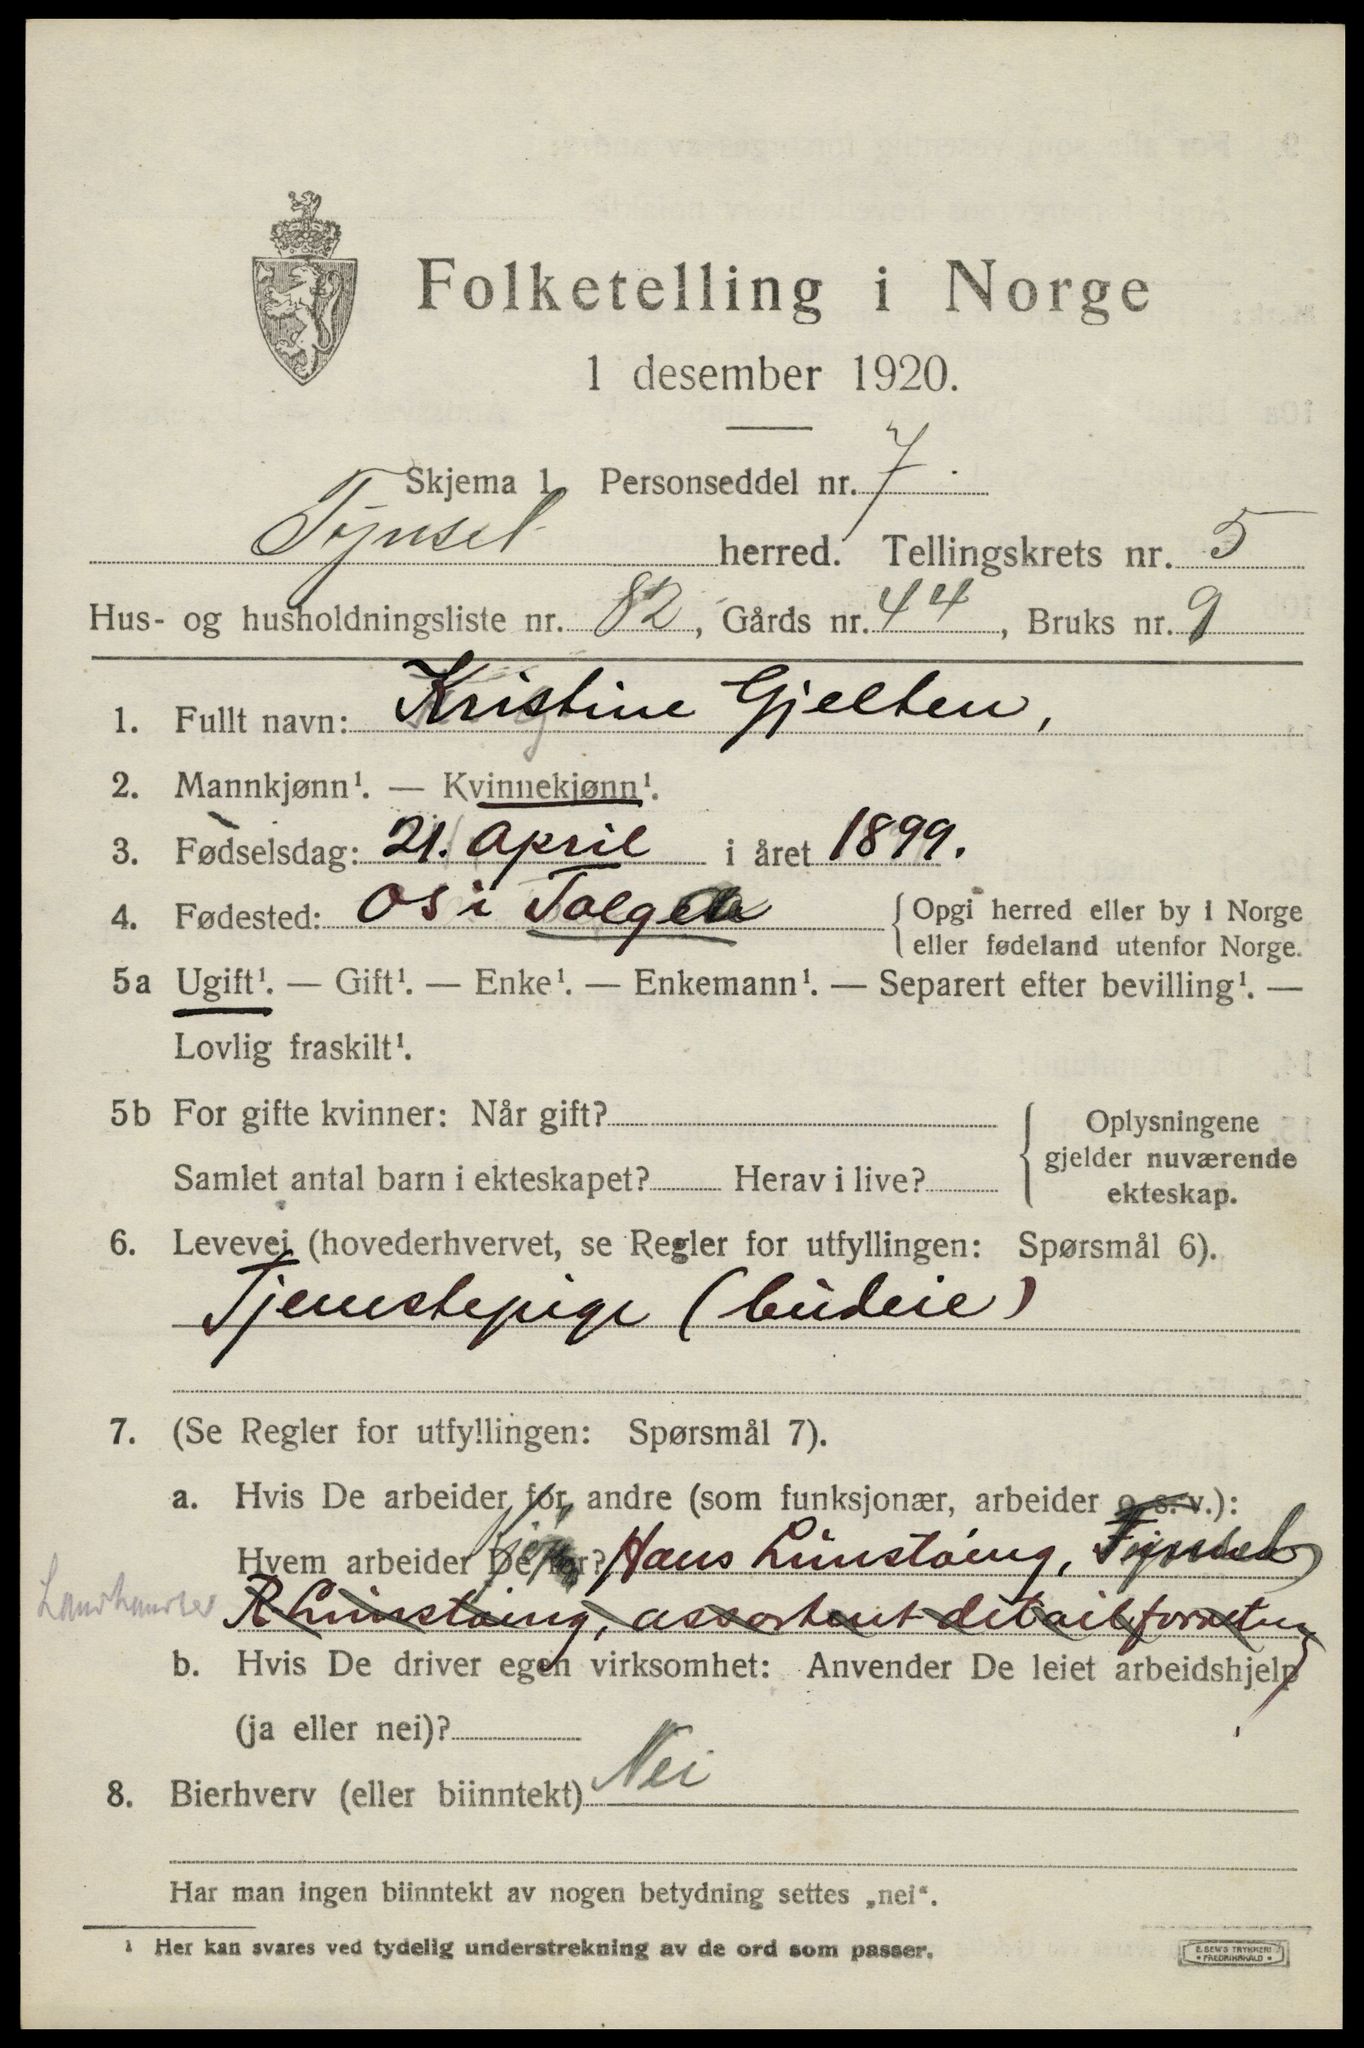 Folketelling i Norge
1 desember 1920.
Skjema 1 Personseddel nr. 7.
Tynset herred. Tellingskrets nr. 5
Hus- og husholdningsliste nr. 82, Gårds nr. 44, Bruks nr. 9
1. Fullt navn: Kristine Gjelten,
2. Mannkjønn¹. — Kvinnekjønn¹.
3. Fødselsdag: 21. april i året 1899.
4. Fødested: Os i Tolgen { Opgi herred eller by i Norge
eller fødeland utenfor Norge.
5a Ugift¹. — Gift¹. — Enke¹. — Enkemann¹. — Separert efter bevilling¹. —
Lovlig fraskilt¹.
5b For gifte kvinner: Når gift? { Oplysningene
gjelder nuværende
Samlet antal barn i ekteskapet? Herav i live? ekteskap.
6. Levevei (hovederhvervet, se Regler for utfyllingen: Spørsmål 6).
Tjenestepige (budeie)
7. (Se Regler for utfyllingen: Spørsmål 7).
a. Hvis De arbeider for andre (som funksjonær, arbeider o. s. v.):
Hvem arbeider De for? Hans Linstøing, Tynset
Landhandler R Linstøing, assortert detailforretn
b. Hvis De driver egen virksomhet: Anvender De leiet arbeidshjelp
(ja eller nei)?
8. Bierhverv (eller biinntekt) Nei
Har man ingen biinntekt av nogen betydning settes „nei“.
¹ Her kan svares ved tydelig understrekning av de ord som passer.
E. SEM'S TRYKKERI
FREDRIKSHALD